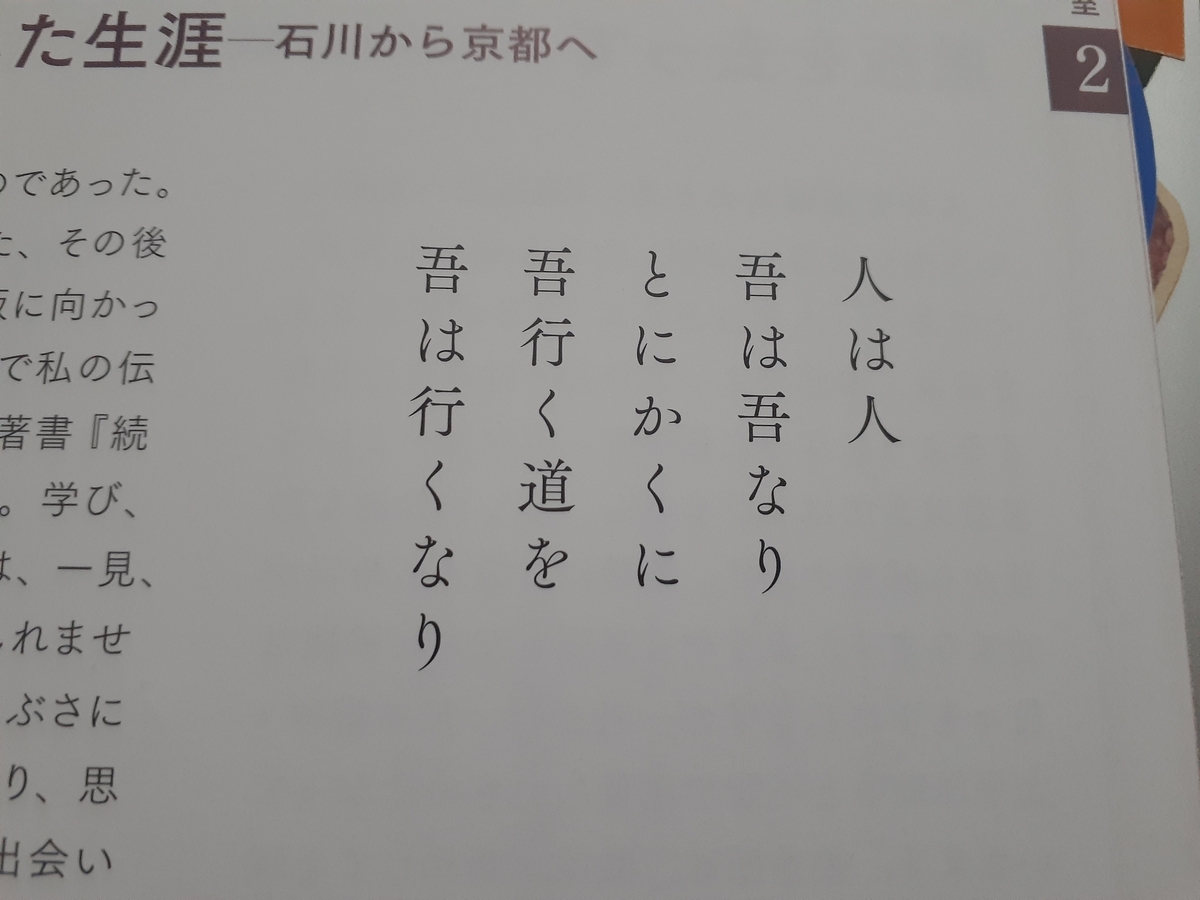 た生涯―石川から京都へ
2
人は人
吾は吾なり
とにかくに
吾行く道を
吾は行くなり
のであった。
た、その後
に向かっ
で私の伝
著書『続
。学び、
は、一見、
しれませ
ぶさに
り、思
出会い